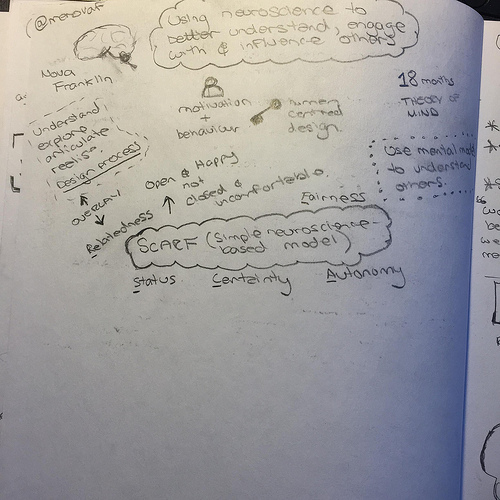 @menovaf
Using neuroscience to
better understand, engage
with & influence others
Nova
Franklin
18 months
THEORY OF
MIND
motivation
+
behaviour
human
centred
design.
understand
explore
articulate
realise.
Design process
Use mental
to understand
others.
overlay
Open & Happy
not
closed &
uncomfortable.
Relatedness
Fairness
SCARF (simple neuroscience-
based model)
Status
Certainty
Autonomy